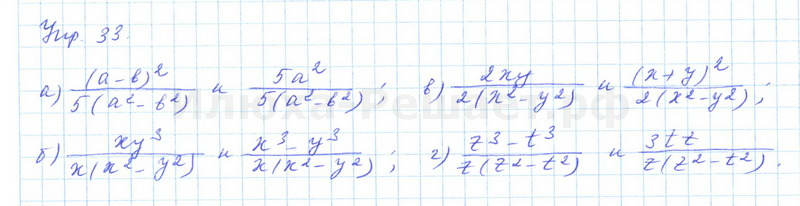 Упр. 33.
а) (a-b)²/5(a²-b²) и 5a²/5(a²-b²); в) 2xy/2(x²-y²) и (x+y)²/2(x²-y²);
б) xy³/x(x²-y²) и x³-y³/x(x²-y²); г) z³-t³/z(z²-t²) и 3tz/z(z²-t²).